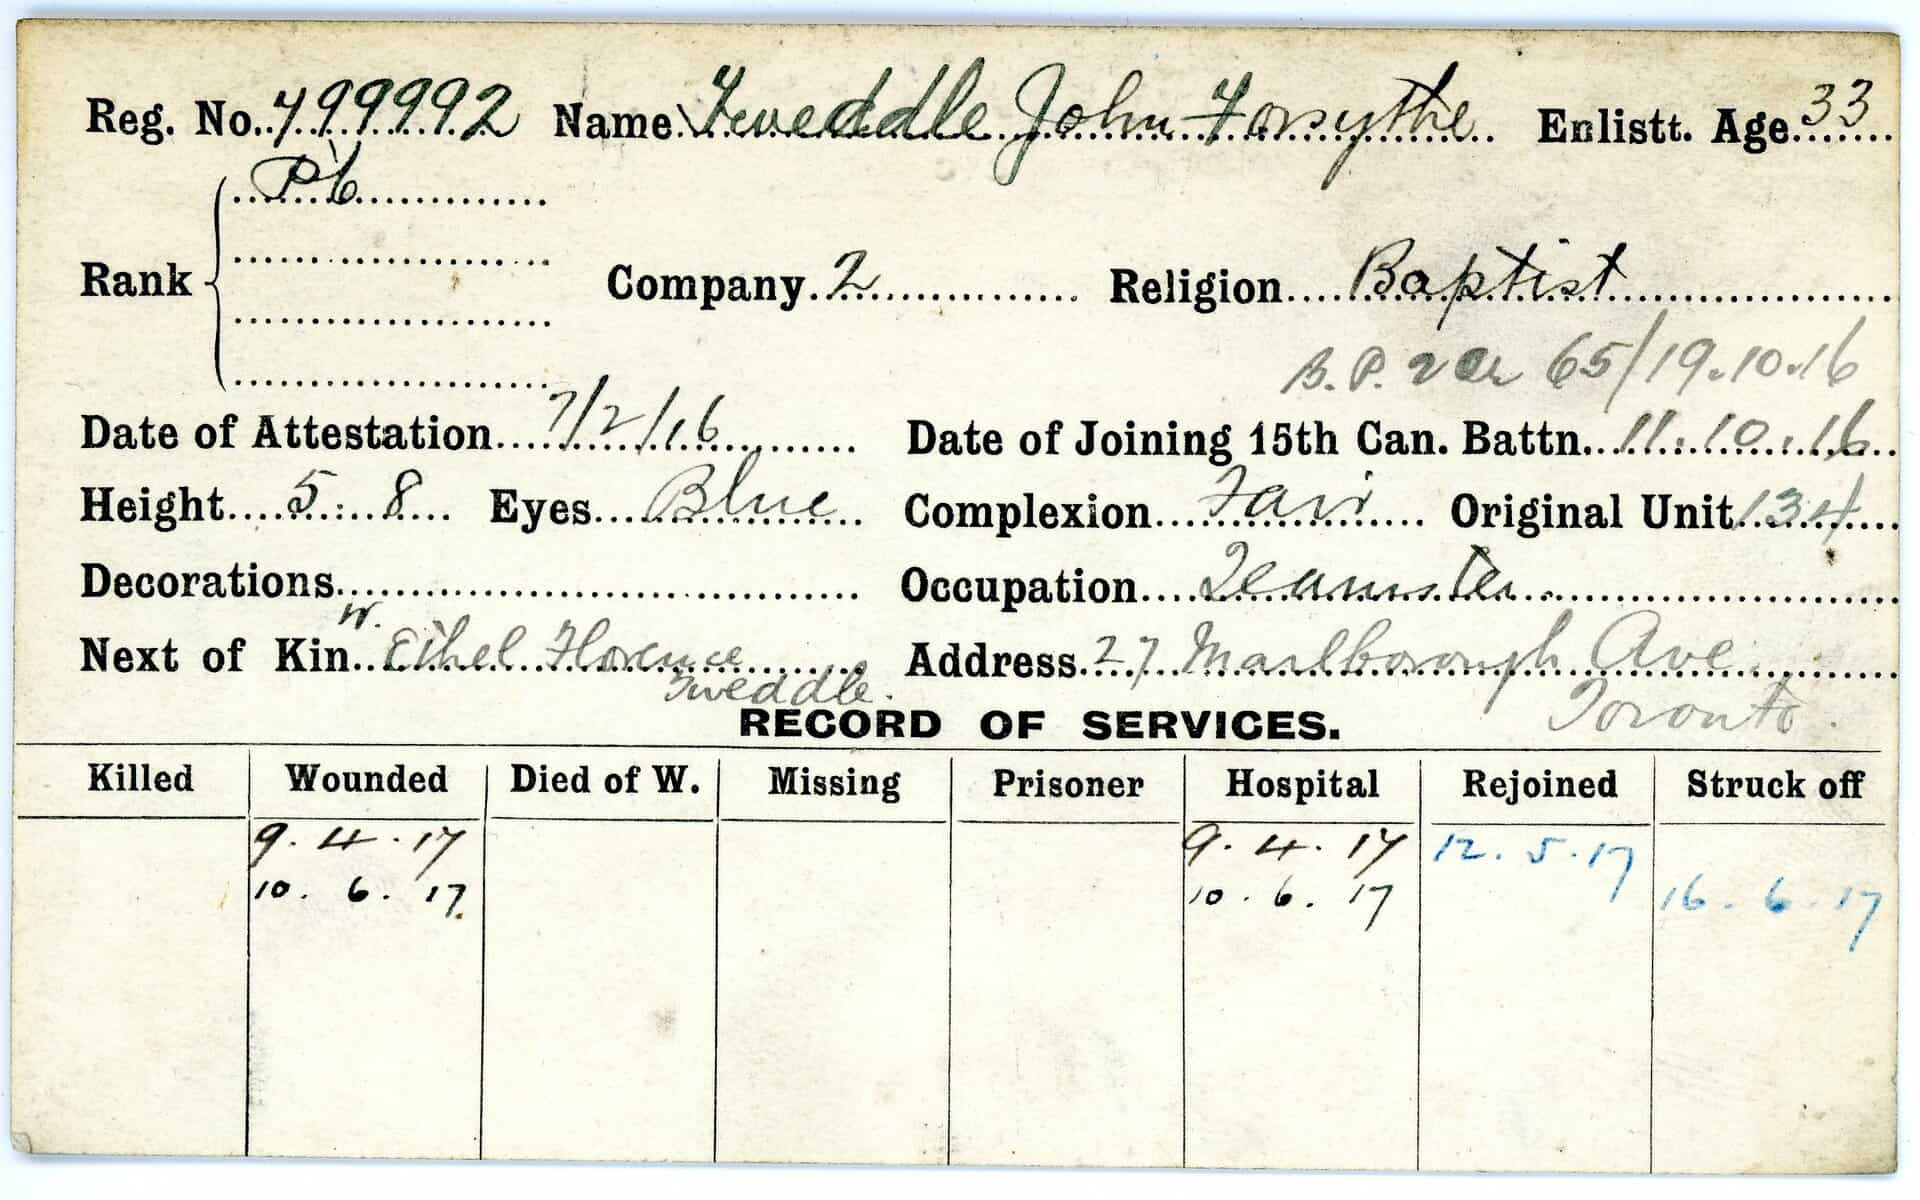 Reg. No. 799992 Name Tweddle John Forsythe Enlistt. Age 33
Rank Pte
Company 2 Religion Baptist
B.P. 65/19.10.16
Date of Attestation 7/2/16 Date of Joining 15th Can. Battn. 11.10.16
Height 5.8 Eyes Blue Complexion Fair Original Unit 134
Decorations Occupation Teamster
W.
Next of Kin Ethel Florence Address 27 Marlborough Ave.
Tweddle. Toronto.
RECORD OF SERVICES.
Killed Wounded Died of W. Missing Prisoner Hospital Rejoined Struck off
9.4.17 9.4.17 12.5.17
10.6.17. 10.6.17 16.6.17